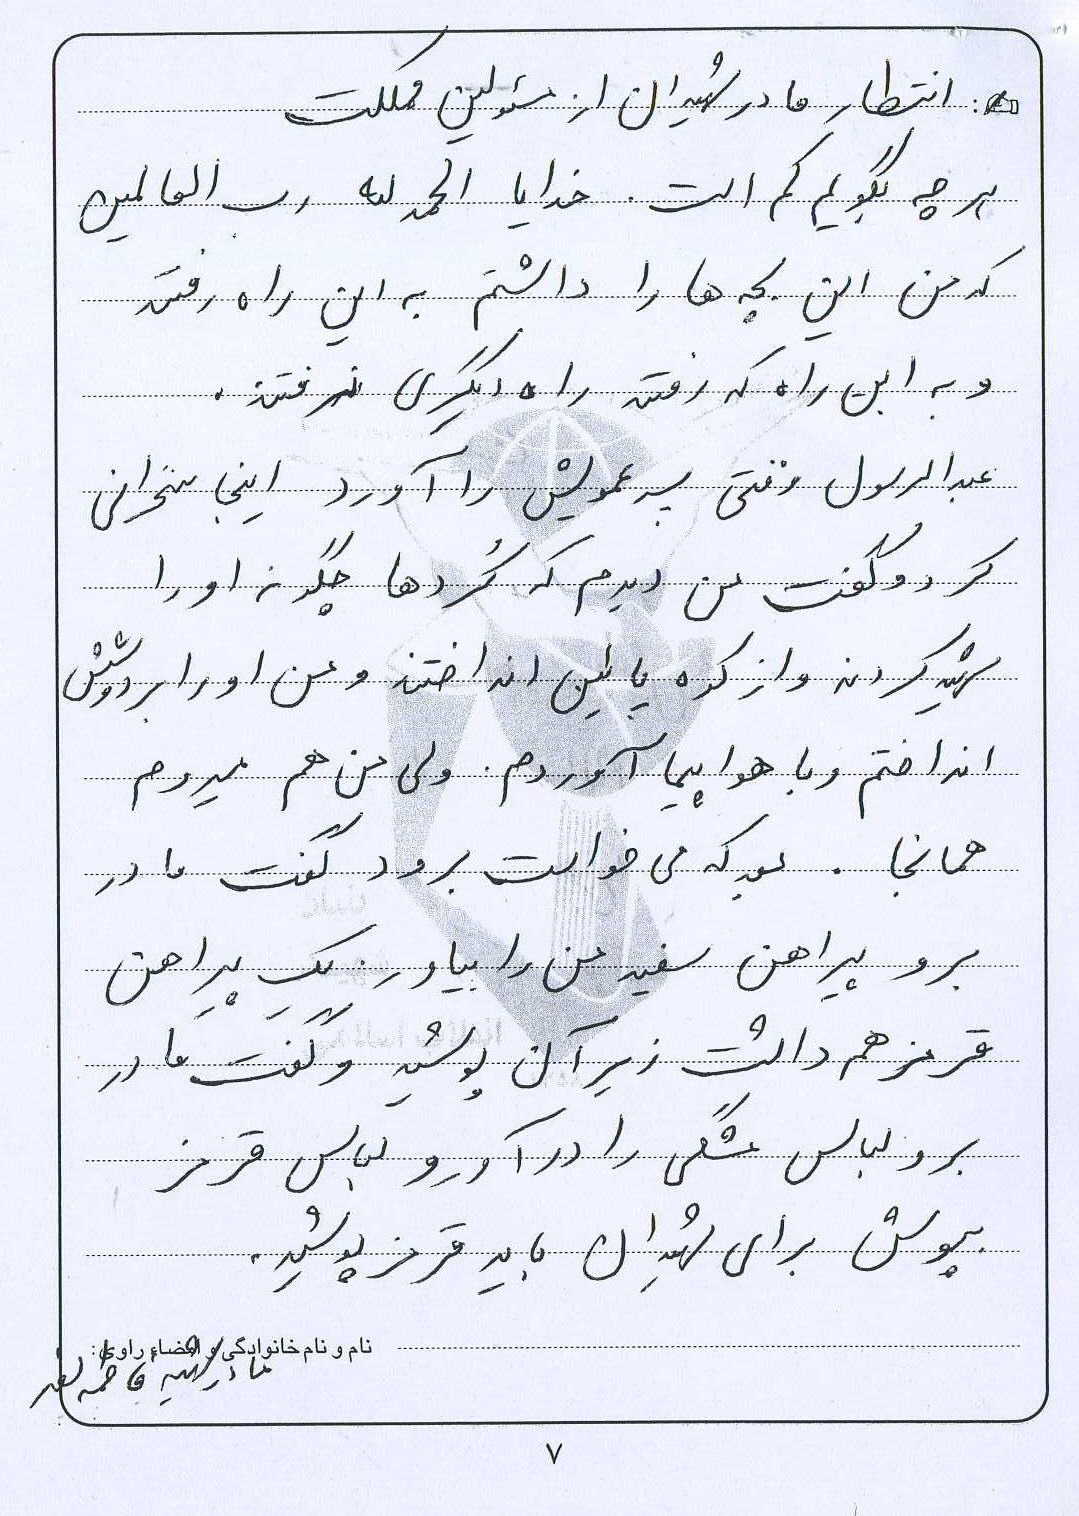 انتظار مادر شهیدان از مسئولین مملکت
هر چه بگویم کم است. خدایا الحمد لله رب العالمین
که من این بچه ها را داشتم به این راه رفتند
و به این راه که رفتند راه دیگری نرفتند.
عبدالرسول وقتی پسر عمویش را آورد اینجا سخنرانی
کرد و گفت من دیدم که کُردها چگونه او را
شهید کردند و از کوه پایین انداختند و من او را بر دوشش
انداختم و با هواپیما آوردم. ولی من هم میروم
همانجا. که می خواست برود گفت مادر
برو پیراهن سفید من را بیاور یک پیراهن
قرمز هم داشت زیر آن پوشید و گفت مادر
برو لباس مشکی را درآور و لباس قرمز
بپوش برای شهیدان باید قرمز پوشید.
نام و نام خانوادگی و امضاء راوی:
مادر شهید فاطمه
۷